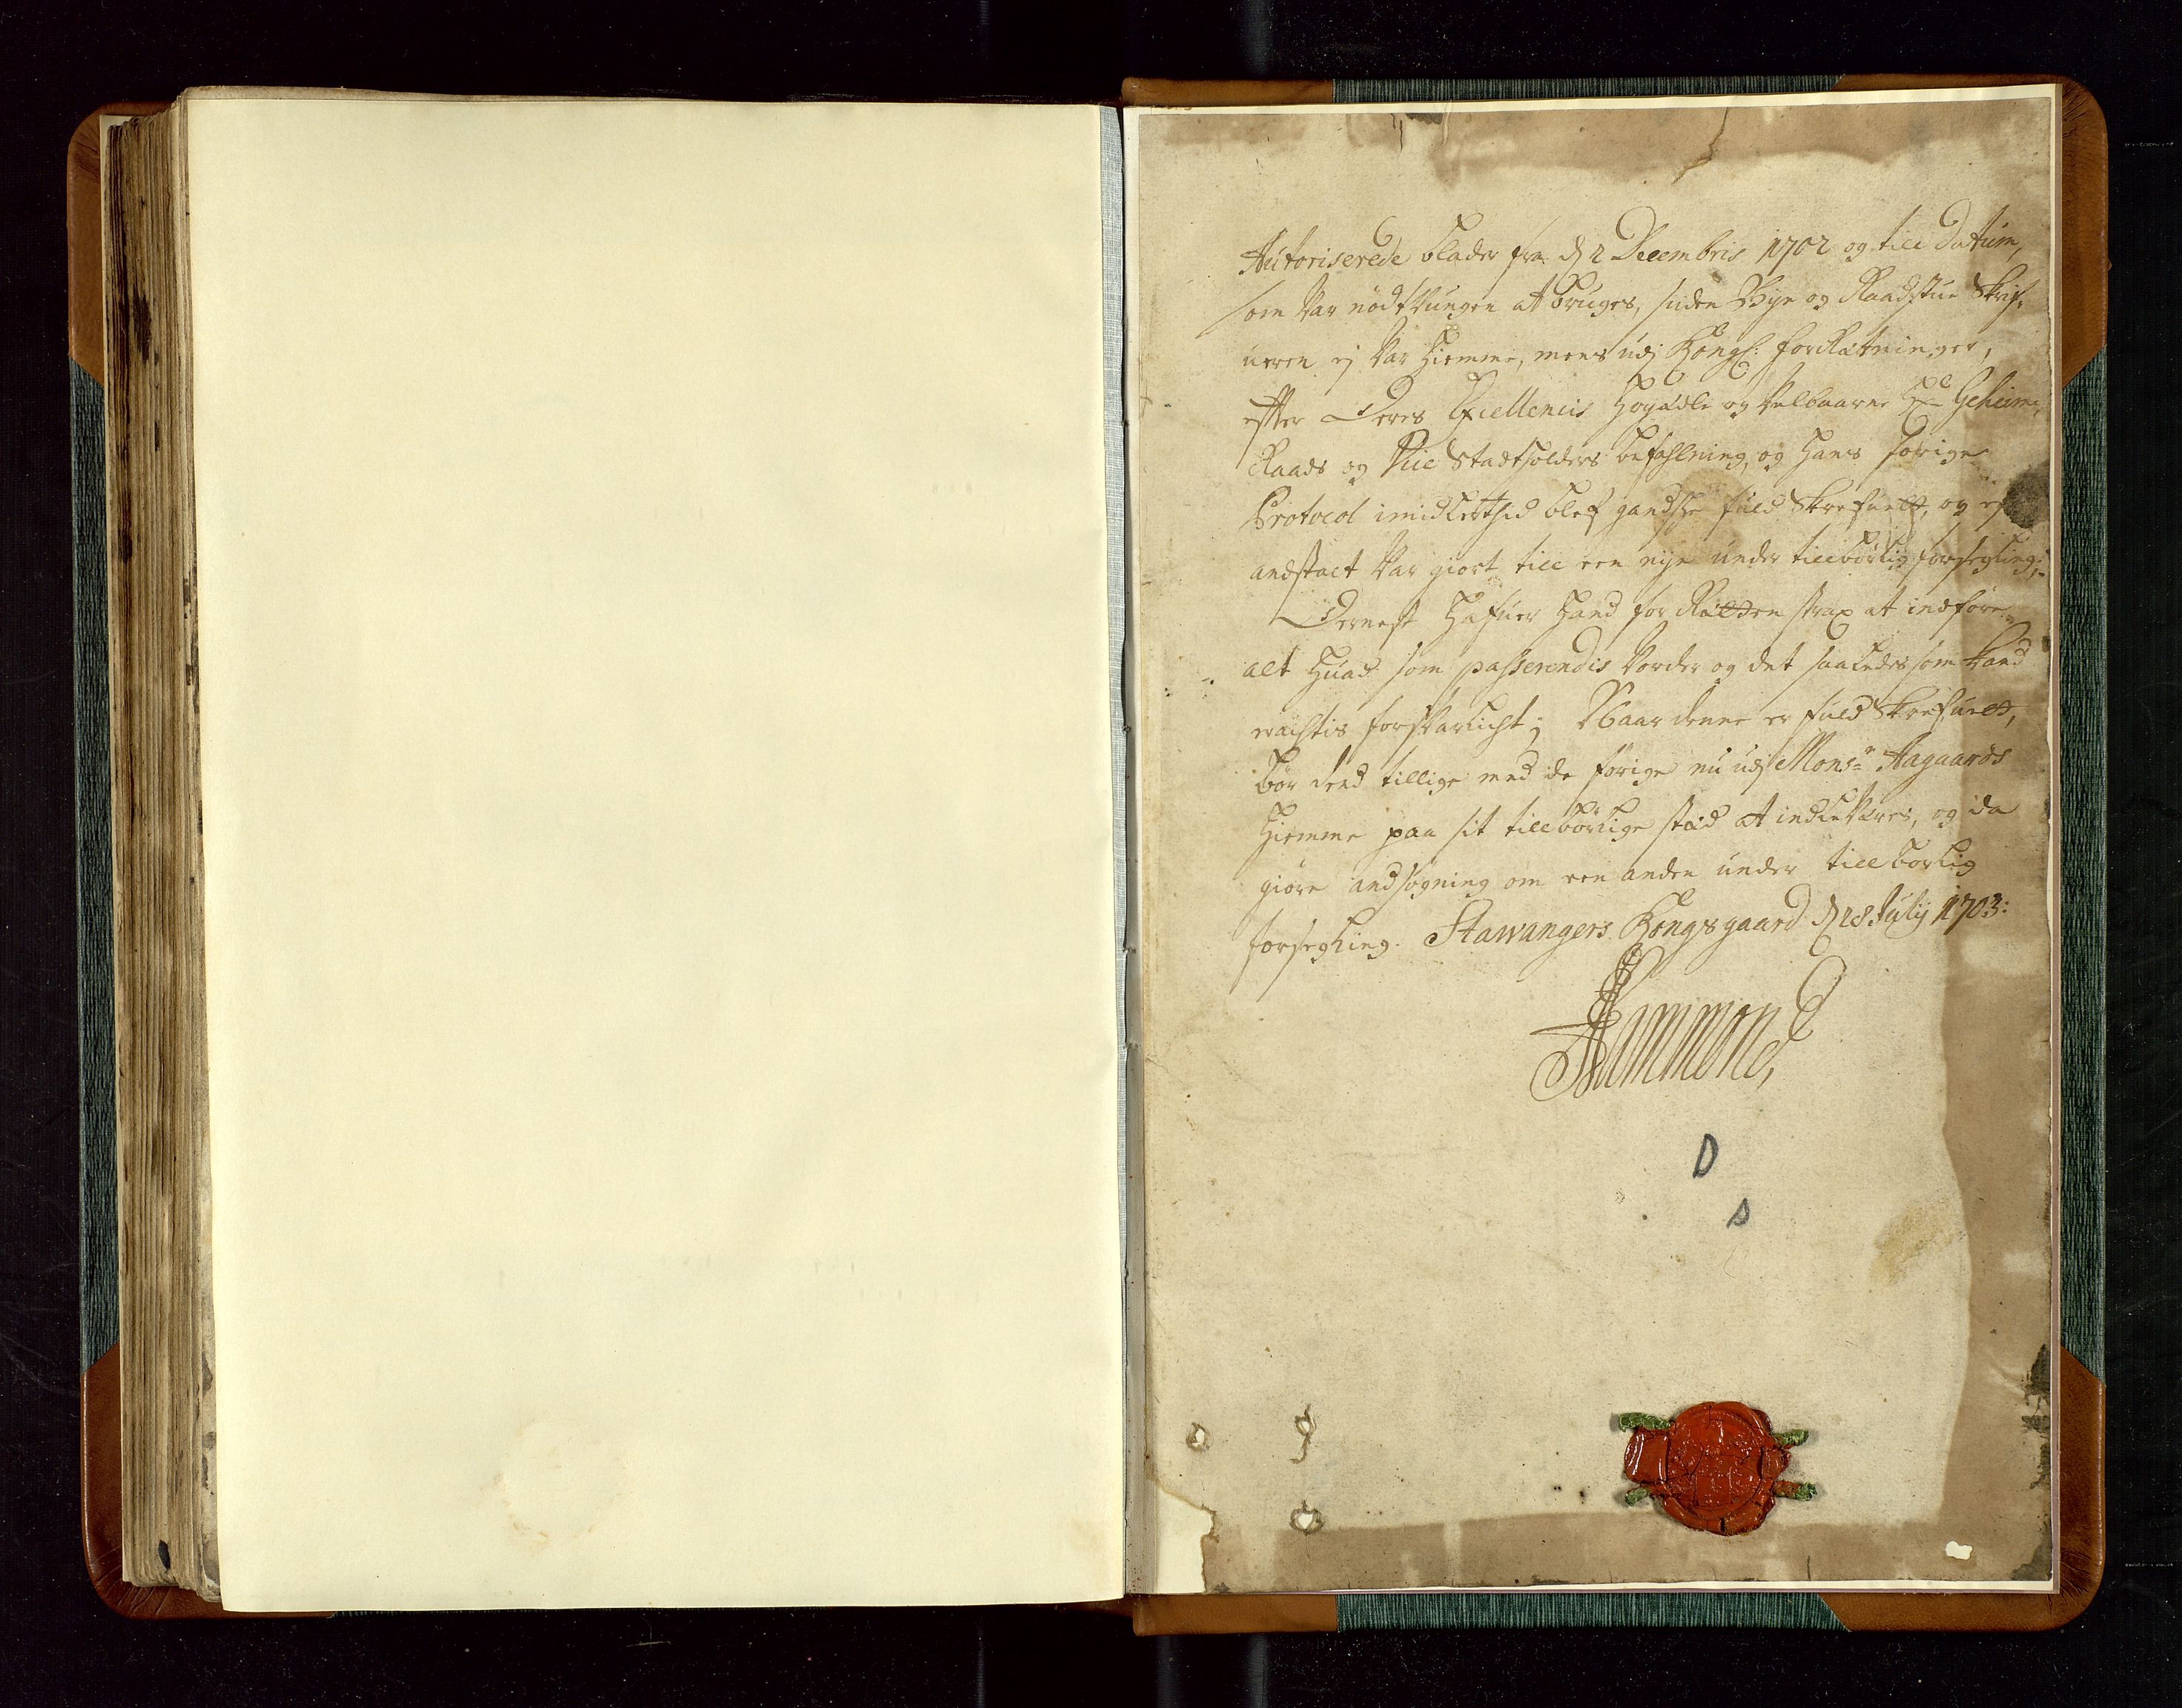 Autoriserede blader fra d 2 Decembris 1702 og till Datum,
som var nödtvungen at bruges, siden Bye og Raadstue Skrif-
ueren ej var hiemme, mens udj Kongl: forrætninger,
effter Deres Excellencis Höyædle og velbaarne Hr Geheime
Raads og Vice Stadtholders befahlning, og hans forige
Protocol imidlertid blef gandske fuld Skrefuett, og ej
andstalt var giort till een nye under tillbörlig forsegling;
Dernest hafuer hand for Rætten strax at indföre
alt huad som passerendis vorder og det saaledes som hand
eragtis forsvarligt; Naar denne er fuld Skrefuett,
bör dend tillige med de forige nu udj Monsr Aagaards
hiemme paa sit tillbörlige stæd at indlefveres, og da
giöre andsögning om een anden under tillbörlig
forsegling. Stawangers Kongsgaard d 28 Julij 1703:
Hammond,
D
D